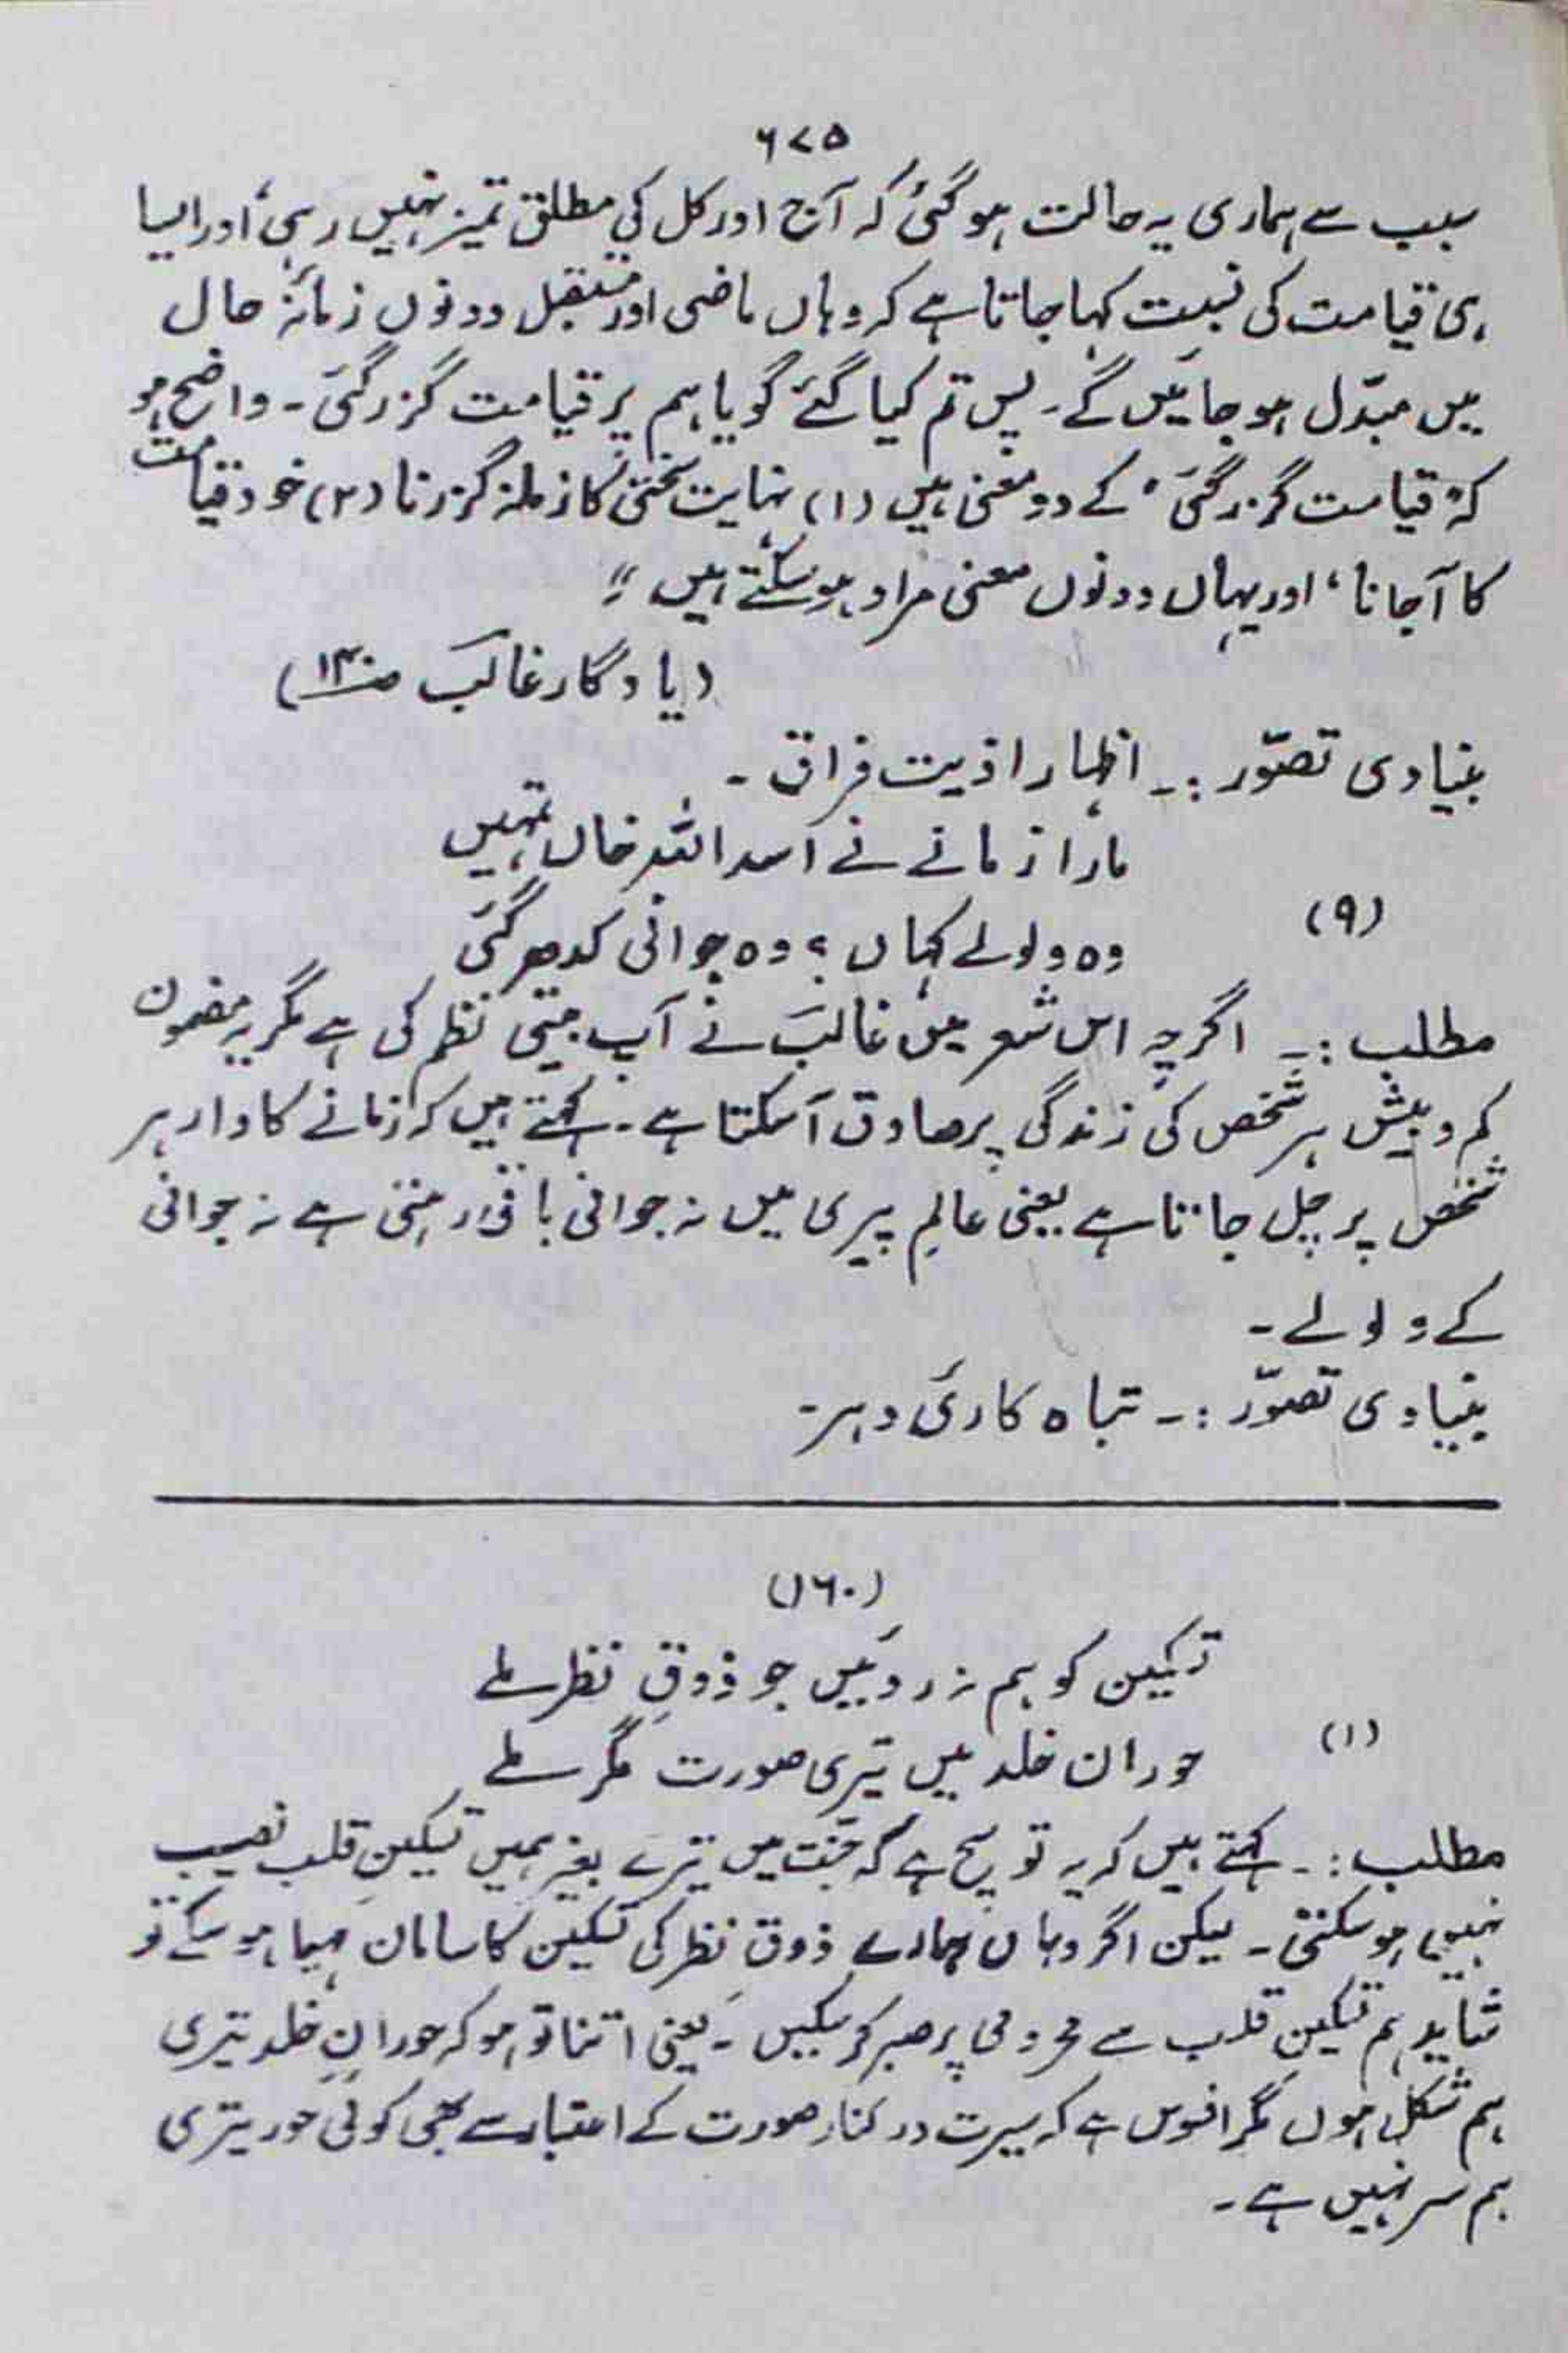 ۶۷۵
سبب سے ہماری یہ حالت ہو گئی کہ آج اور کل کی مطلق تمیز نہیں رہی، اور ایسا
ہی قیامت کی نسبت کہا جاتا ہے کہ وہاں ماضی اور مستقبل دونوں زمانۂ حال
میں مبدّل ہو جائیں گے۔ پس تم کیا گئے گویا ہم پر قیامت گزر گئی۔ واضح ہو
کہ "قیامت گزر گئی" کے دو معنی ہیں (۱) نہایت سختی کا زمانہ گزرنا (۲) خود قیامت
کا آجانا، اور یہاں دونوں معنی مراد ہو سکتے ہیں"
(یادگار غالبؔ ص۱۳۰)
بنیادی تصوّر :۔ اظہار اذیت فراق۔
مارا زمانے نے اسد اللہ خاں تمہیں
(۹)
وہ ولولے کہاں ؟ وہ جوانی کدھر گئی
مطلب :۔ اگرچہ اس شعر میں غالبؔ نے آپ بیتی نظم کی ہے مگر یہ مضمون
کم و بیش ہر شخص کی زندگی پر صادق آسکتا ہے۔ کہتے ہیں کہ زمانے کا وار ہر
شخص پر چل جاتا ہے یعنی عالمِ پیری میں نہ جوانی باقی رہتی ہے نہ جوانی
کے ولولے۔
بنیادی تصوّر :۔ تباہ کاریٔ دہر۔
(۱۶۰)
تسکین کو ہم نہ روئیں جو ذوقِ نظر ملے
(۱)
حوران خلد میں تیری صورت مگر ملے
مطلب :۔ کہتے ہیں کہ یہ تو سچ ہے کہ جنّت میں تیرے بغیر ہمیں تسکینِ قلب نصیب
نہیں ہو سکتی۔ لیکن اگر وہاں ہمارے ذوق نظر کی تسکین کا سامان مہیا ہو سکے تو
شاید ہم تسکینِ قلب سے محرومی پر صبر کر سکیں۔ یعنی اتنا تو ہو کہ حورانِ خلد تیری
ہم شکل ہوں مگر افسوس ہے کہ سیرت درکنار صورت کے اعتبار سے بھی کوئی حور تیری
ہم سر نہیں ہے۔